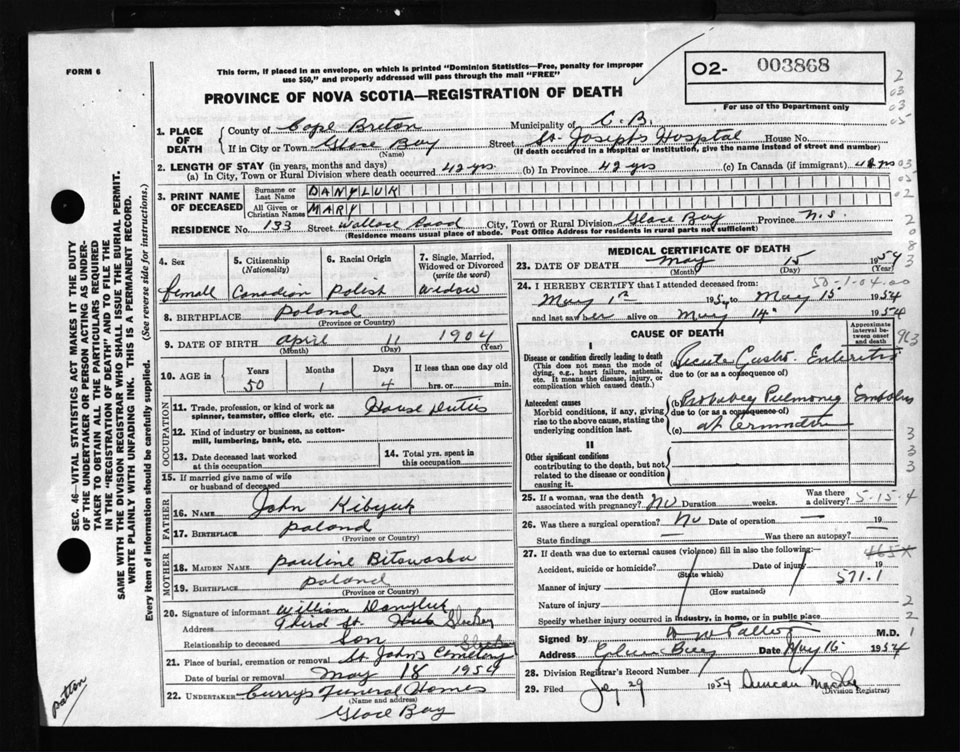 FORM 6
This form, if placed in an envelope, on which is printed "Dominion Statistics—Free, penalty for improper
use $50," and properly addressed will pass through the mail "FREE"
PROVINCE OF NOVA SCOTIA—REGISTRATION OF DEATH
O2- 003868
For use of the Department only
2
03
03
05
1. PLACE OF DEATH
County of Cape Breton Municipality of C. B.
If in City or Town Glace Bay Street St. Joseph's Hospital House No.
(Name) (If death occurred in a hospital or institution, give the name instead of street and number)
2. LENGTH OF STAY (in years, months and days)
(a) In City, Town or Rural Division where death occurred 42 yrs. (b) In Province 42 yrs (c) In Canada (if immigrant) yrs 03
05
3. PRINT NAME OF DECEASED
Surname or Last Name DANYLUK
All Given or Christian Names MARY
02
RESIDENCE No. 133 Street Wallace Road City, Town or Rural Division Glace Bay Province N.S.
(Residence means usual place of abode. Post Office Address for residents in rural parts not sufficient)
2
0
8
3
4. Sex female
5. Citizenship (Nationality) Canadian
6. Racial Origin Polish
7. Single, Married, Widowed or Divorced (write the word) Widow
8. BIRTHPLACE Poland
(Province or Country)
9. DATE OF BIRTH April 11 1904
(Month) (Day) (Year)
10. AGE in Years Months Days If less than one day old
50 1 4 hrs. or min.
OCCUPATION
11. Trade, profession, or kind of work as spinner, teamster, office clerk, etc. House Duties
12. Kind of industry or business, as cotton-mill, lumbering, bank, etc.
13. Date deceased last worked at this occupation
14. Total yrs. spent in this occupation
15. If married give name of wife or husband of deceased
FATHER
16. NAME John Kibyuk
17. BIRTHPLACE Poland
(Province or Country)
MOTHER
18. MAIDEN NAME Pauline
19. BIRTHPLACE Poland
(Province or Country)
20. Signature of informant William Danyluk
Address Third St.
Relationship to deceased Son
21. Place of burial, cremation or removal St. John's Cemetery
Date of burial or removal May 18 1954
22. UNDERTAKER Curry's Funeral Homes
(Name and address)
Glace Bay
MEDICAL CERTIFICATE OF DEATH
23. DATE OF DEATH May 15 1954
(Month) (Day) (Year)
50-1-04.00
24. I HEREBY CERTIFY that I attended deceased from:
May 1st 1954 to May 15 1954
and last saw her alive on May 14" 1954
CAUSE OF DEATH
Approximate interval between onset and death
963
I
Disease or condition directly leading to death
(This does not mean the mode of dying, e.g., heart failure, asthenia, etc. It means the disease, injury, or complication which caused death.)
(a) Acute Gastro. Enteritis
due to (or as a consequence of)
Antecedent causes
Morbid conditions, if any, giving rise to the above cause, stating the underlying condition last.
(b) Probably Pulmonary Embolus
due to (or as a consequence of)
(c) at
3
3
3
II
Other significant conditions
contributing to the death, but not related to the disease or condition causing it.
25. If a woman, was the death associated with pregnancy? No Duration weeks. Was there a delivery? 5-15-4
26. Was there a surgical operation? No Date of operation 19
State findings Was there an autopsy?
27. If death was due to external causes (violence) fill in also the following:
465X
Accident, suicide or homicide? Date of injury 19
(State which)
571.1
Manner of injury
(How sustained)
Nature of injury
2
Specify whether injury occurred in industry, in home, or in public place 2
Signed by M.D. 1
Address Glace Bay Date May 16 1954
28. Division Registrar's Record Number
29. Filed 29 1954 Duncan
(Division Registrar)
SEC. 46—VITAL STATISTICS ACT MAKES IT THE DUTY
OF THE UNDERTAKER OR PERSON ACTING AS UNDER-
TAKER TO OBTAIN ALL THE PARTICULARS REQUIRED
IN THE "REGISTRATION OF DEATH" AND TO FILE THE
SAME WITH THE DIVISION REGISTRAR WHO SHALL ISSUE THE BURIAL PERMIT.
WRITE PLAINLY WITH UNFADING INK. THIS IS A PERMANENT RECORD.
Every item of information should be carefully supplied. (See reverse side for instructions.)
Patton